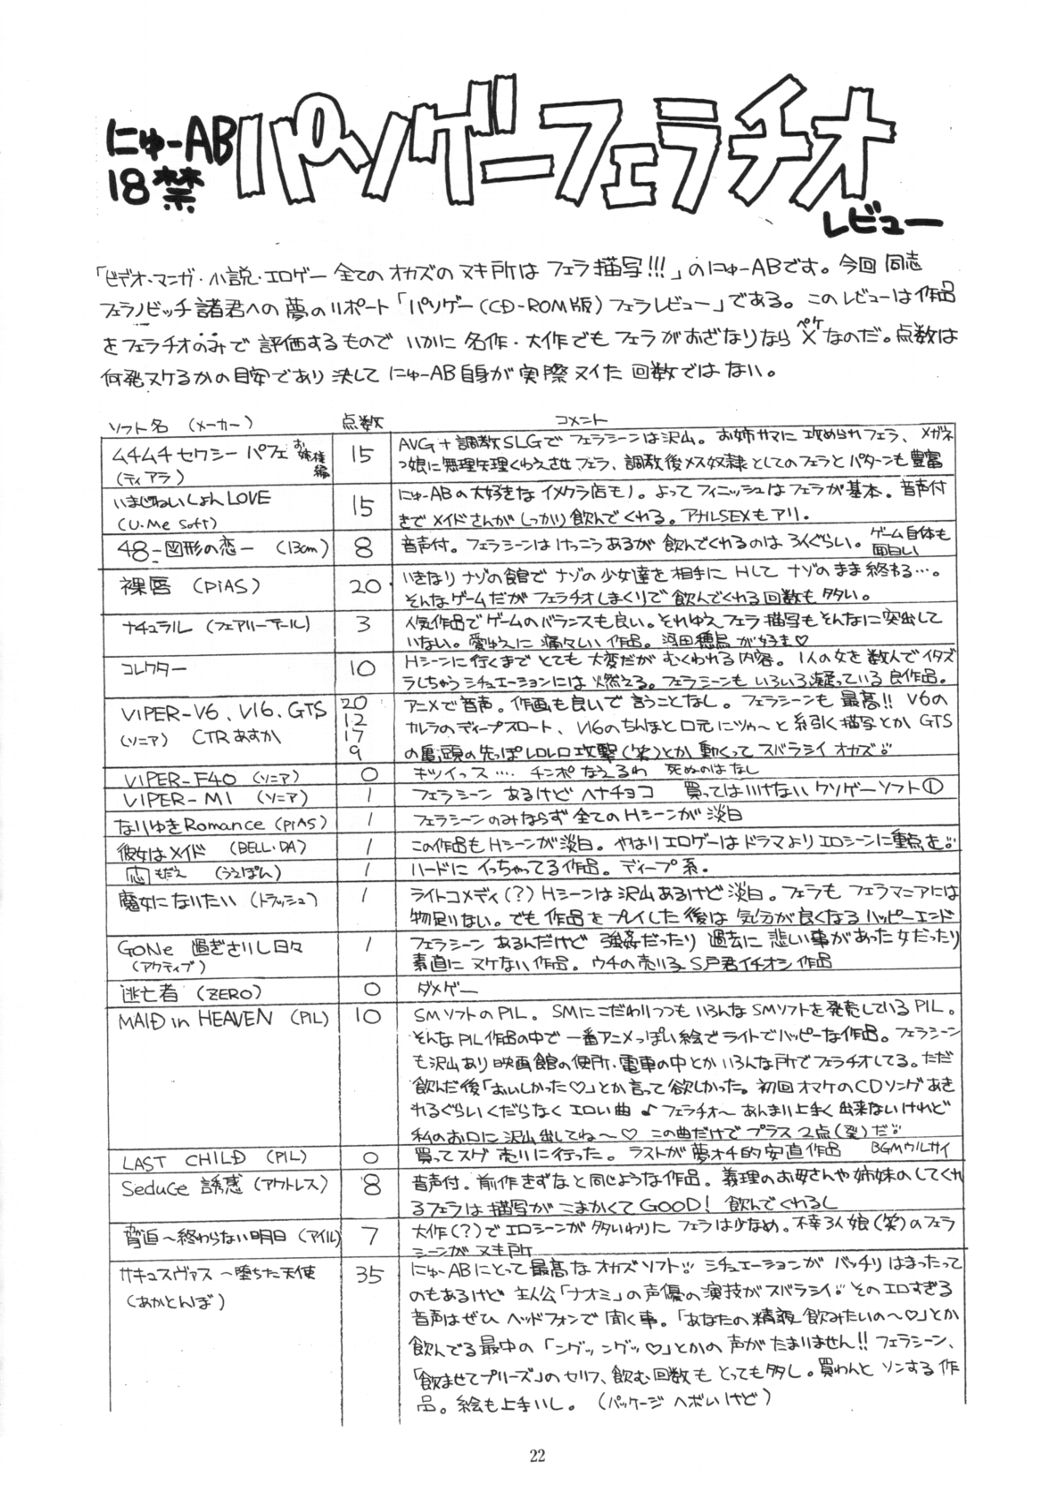 にゅーAB
18禁
パソゲーフェラチオ
レビュー
「ビデオ・マンガ・小説・エロゲー 全てのオカズのヌキ所は フェラ描写!!!」のにゅーABです。今回 同志
フェラノビッチ諸君への夢のリポート「パソゲー(CD-ROM版)フェラレビュー」である。このレビューは作品
をフェラチオのみで評価するもので いかに 名作・大作でも フェラがおざなりなら ×(ペケ)なのだ。点数は
何発ヌケるかの目安であり 決して にゅーAB自身が 実際 ヌイた 回数ではない。
ソフト名 (メーカー) 点数 コメント
ムチムチセクシーパフェ お姉様編 (ティアラ) 15
AVG+調教SLGで フェラシーンは沢山。お姉サマに 攻められフェラ、メガネ
っ娘に無理矢理くわえさせフェラ、調教後メス奴隷としてのフェラとパターンも豊富
いまじねいしょんLOVE (U・Me Soft) 15
にゅーABの大好きな イメクラ店モノ。よってフィニッシュは フェラが基本。音声付
きで メイドさんが しっかり 飲んでくれる。アナルSEXもアリ.
48-図形の恋- (13cm) 8
音声付。フェラシーンは けっこうあるが 飲んでくれるのは 3人ぐらい。 ゲーム自体も面白い
裸唇 (PIAS) 20
いきなり ナゾの館で ナゾの少女達を相手に Hして ナゾのまま終わる…。
そんなゲームだが フェラチオしまくりで 飲んでくれる回数も多い。
ナチュラル (フェアリーテール) 3
人気作品でゲームのバランスも良い。それゆえ フェラ描写もそんなに突出して
いない。愛ゆえに 痛々しい作品。 が好き♡
コレクター 10
Hシーンに行くまで とても 大変だが むくわれる内容。1人の女を数人でイタズ
ラしちゃう シチュエーションには 燃える。フェラシーンも いろいろ凝っている 良作品。
VIPER-V6、V16、GTS (ソニア) CTRあすか 20 12 17 9
アニメで音声。作画も良いで 言うことなし。 フェラシーンも 最高!! V6の
カルラのディープスロート、V16のちんほと口元にツゥ〜と 糸引く描写とか GTS
の亀頭の先っぽレロレロ攻撃(笑)とか 動くって スバラシイ オカズ!!
VIPER-F40 (ソニア) 0
キツイっス…. チンポなえるわ 死ぬのはなし
VIPER-M1 (ソニア) 1
フェラシーン あるけど ヘナチョコ 買ってはいけない クソゲーソフト①
なりゆきRomance (PIAS) 1
フェラシーンのみならず 全てのHシーンが 淡白
彼女はメイド (BELL・DA) 1
この作品もHシーンが淡白. やはりエロゲーはドラマよりエロシーンに重点を!!
恋もだえ (うえぽん) 1
ハードに イっちゃってる作品。ディープ系.
魔女になりたい (トラッシュ) 1
ライトコメディ(?)Hシーンは沢山あるけど 淡白。フェラも フェラマニアには
物足りない。でも 作品をプレイした後は 気分が良くなる ハッピーエンド
GONe 過ぎさりし日々 (アクティブ) 1
フェラシーン あるんだけど 強姦だったり 過去に 悲しい事があった女だったり
素直に ヌケない作品。ウチの売り子 S戸君イチオシ作品
逃亡者 (ZERO) 0
ダメゲー
MAID in HEAVEN (PIL) 10
SMソフトのPIL。SMにこだわりつつも いろんなSMソフトを発売しているPIL。
そんなPIL作品の中で 一番アニメっぽい絵でライトでハッピーな作品。フェラシーン
も沢山あり映画館の便所・電車の中とか いろんな所でフェラチオしてる。ただ
飲んだ後「おいしかった♡」とか言って欲しかった。初回オマケのCDソングあき
れるぐらいくだらなく エロい曲 ♪フェラチオ〜 あんまり上手く 出来ないけれど
私のお口に沢山出してね〜♡ この曲だけで プラス2点(翌)だ!!
LAST CHILD (PIL) 0
買ってスグ 売りに行った。ラストが夢オチ的安直作品 BGMウルサイ
SeduCe 誘惑 (アウトレス) 8
音声付。前作きずなと同じような作品。義理のお母さんや姉妹のしてくれ
るフェラは描写がこまかくてGOOD! 飲んでくれるし
脅迫〜終わらない明日 (アイル) 7
大作(?)でエロシーンが多いわりに フェラは少なめ.不幸3人娘(笑)のフェラ
シーンが ヌキ所
サキュスヴァス〜堕ちた天使 (あかとんぼ) 35
にゅーABにとって最高なオカズソフト!! シチュエーションがバッチリはまったって
のもあるけど 主人公「ナオミ」の声優の演技がスバラシイ!!そのエロすぎる
音声はぜひ ヘッドフォンで 聞く事。「あなたの精液 飲みたいの〜♡」とか
飲んでる最中の「ングッングッ♡」とかの声がたまりません!!フェラシーン、
「飲ませてプリーズ」のセリフ、飲む回数も とっても多し。買わんと ソンする 作
品。絵も上手いし。 (パッケージ ヘボいけど)
22